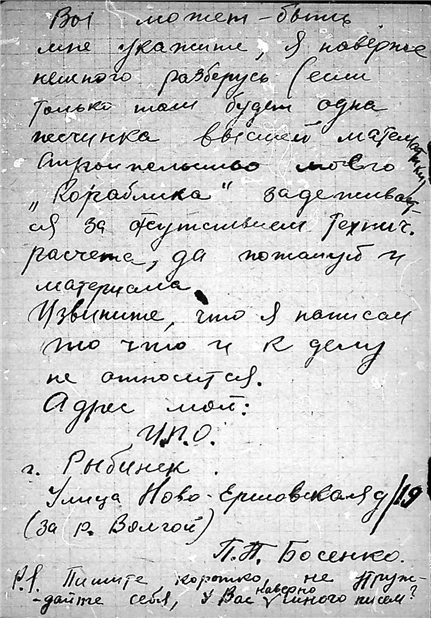 Вы может-быть
мне укажите, я наверное
немного разберусь (если
только там будет одна
песчинка высшей математики)
Строительство моего
„Кораблика" задерживает-
ся за отсутствием технич.
расчета, да пожалуй и
материала.
Извините, что я написал
то что и к делу
не относится.
Адрес мой:
И.П.О.
г. Рыбинск.
Улица Ново-Ершовская д/19
(за р. Волгой)
П.П. Босенко.
P.S. Пишите, коротко, не утруж-
-дайте себя, у Вас наверно много писем?